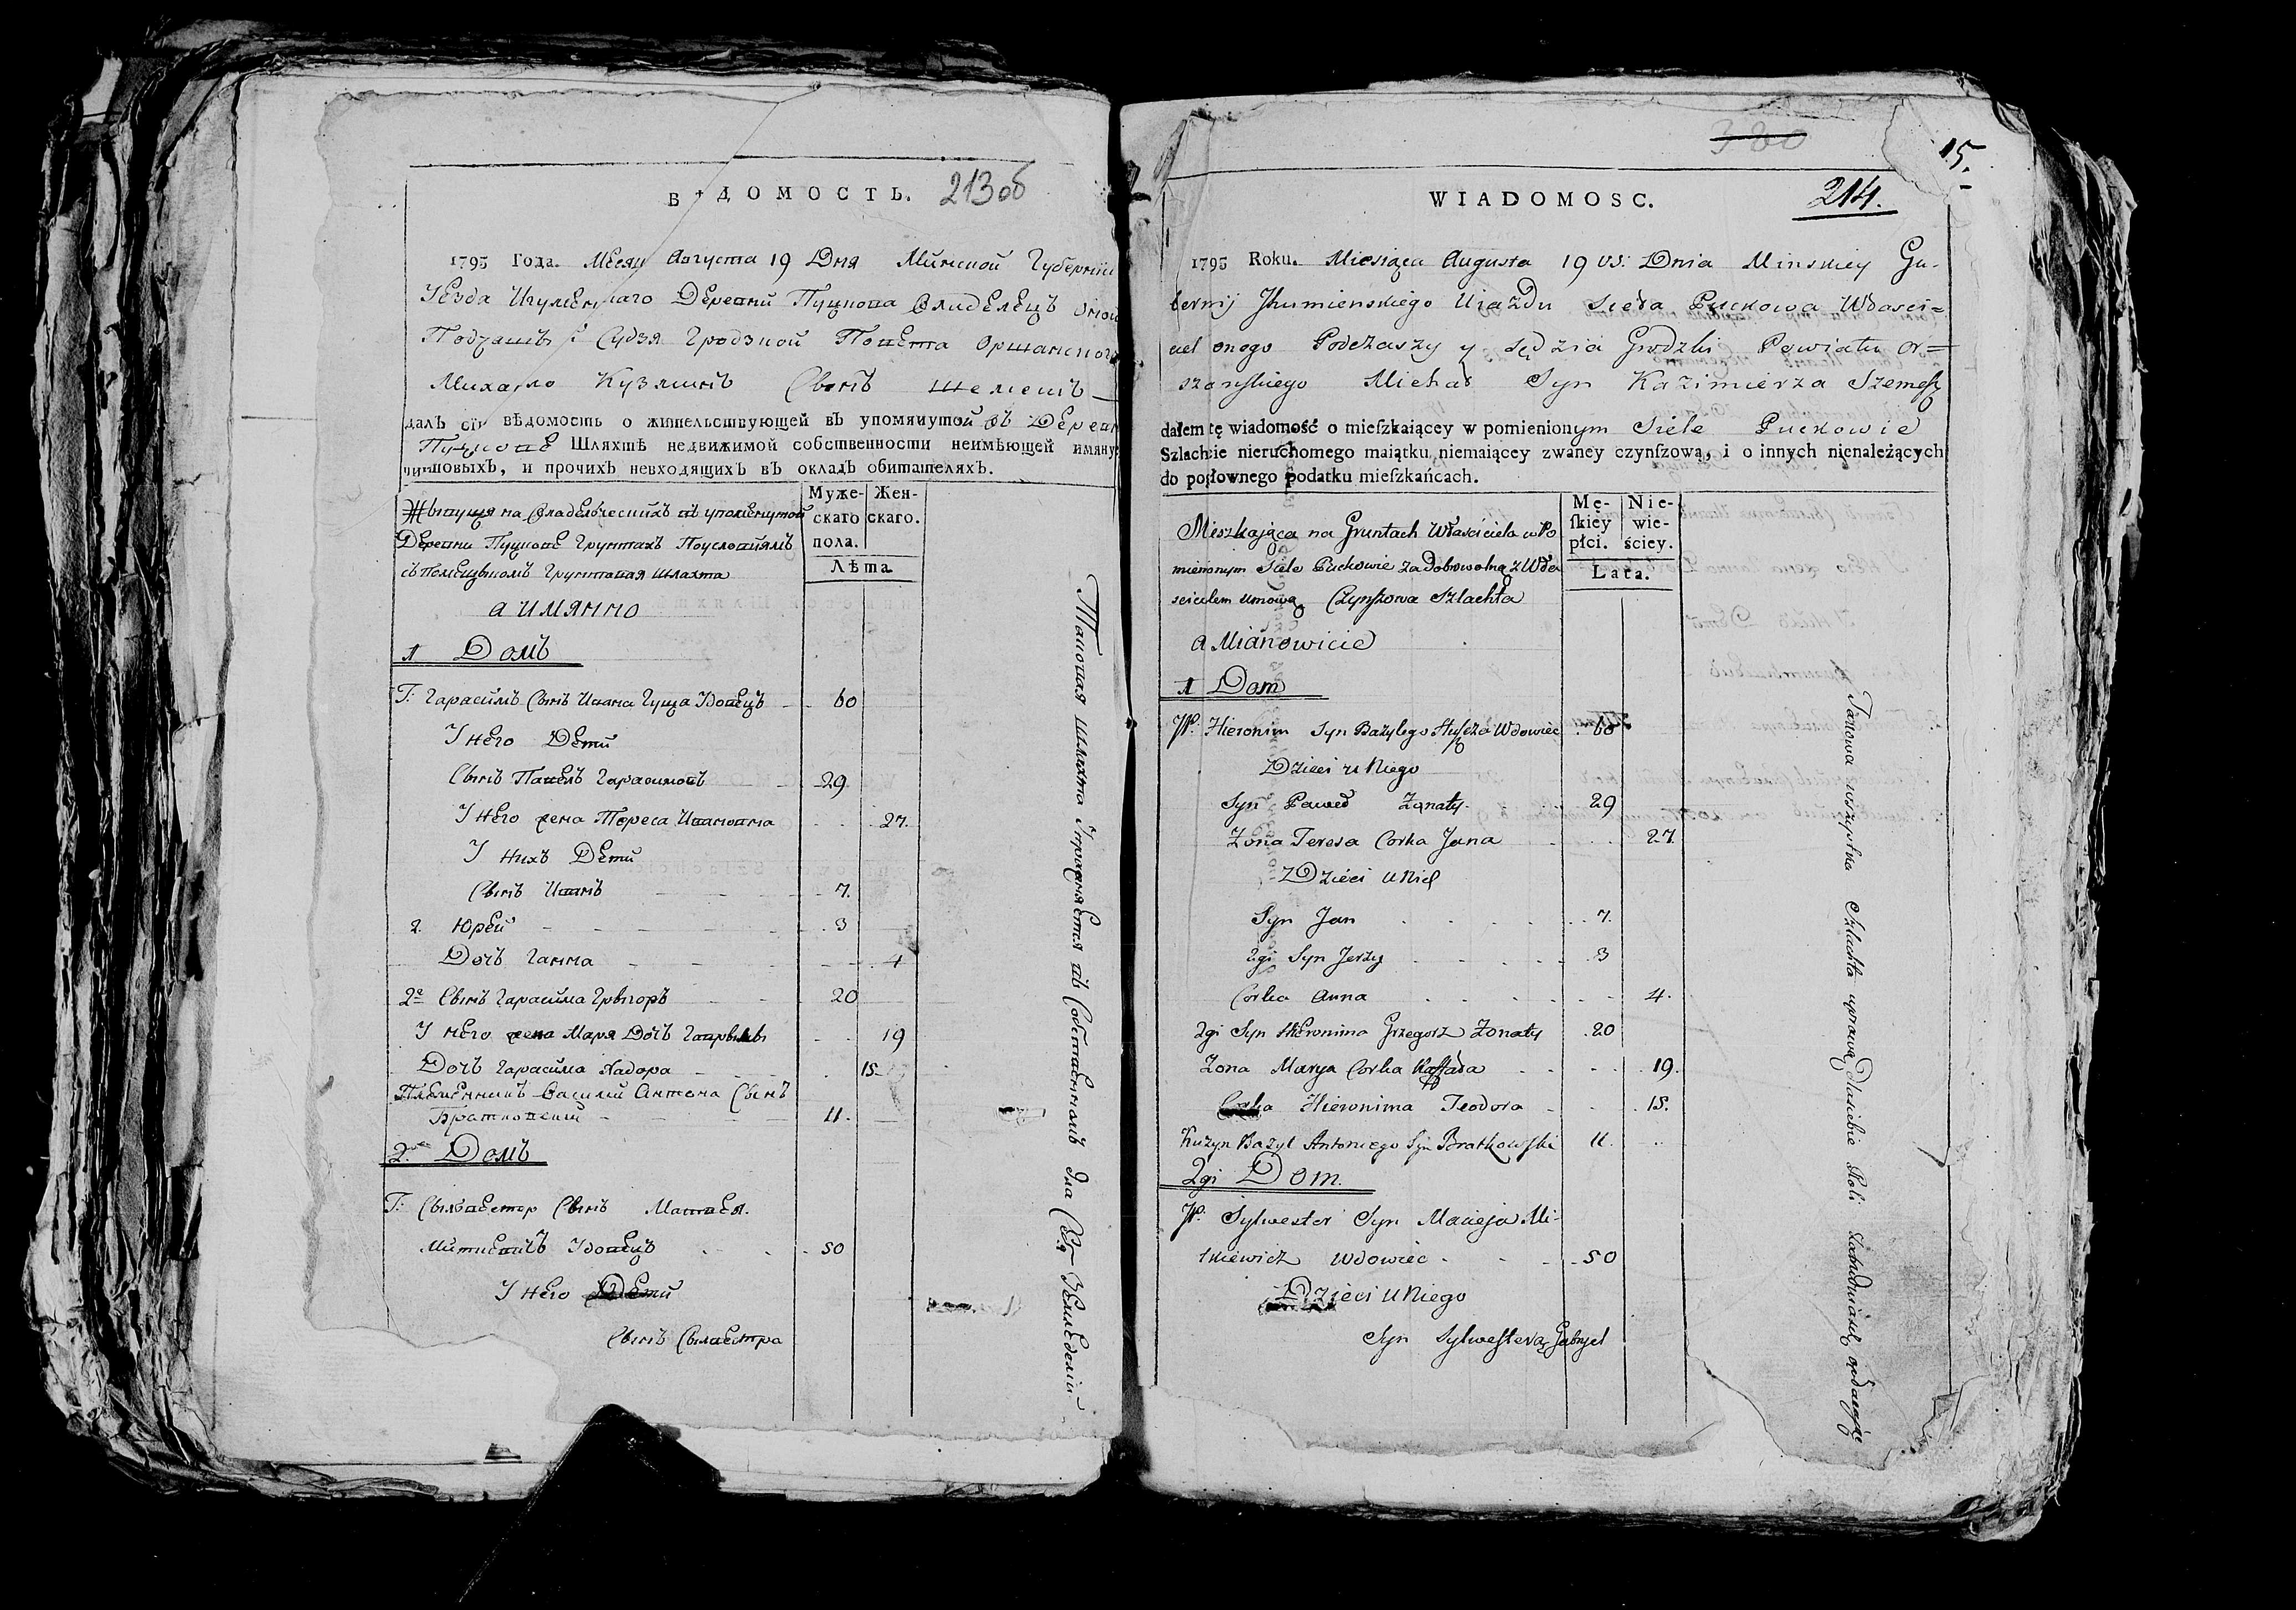 ВѢДОМОСТЬ. 213 об
1795 Года. Месяц Августа 19 Дня Минской Губернии
Уезда Игуменскаго Деревни Пуцкова Владелецъ оной
Подчашы i Судзя Гродзкой Повета Оршанского
Михайло Кузминъ Сынъ Шемешъ
далъ сiю вѣдомость о жительствующей въ упомянутой въ Дерев
Пуцкове Шляхтѣ недвижимой собственности неимѣющей имяну
чиншовыхъ, и прочихъ невходящихъ въ окладъ обитателяхъ.
Муже- Жен-
скаго скаго.
пола.
Лѣта
Живуща на Владелческихъ въ упоменутой
Деревни Пуцкове Грунтахъ По условиямъ
съ Помещыкомъ Грунтовая шляхта
а имянно
1 Домъ
Г: Гарасимъ Сынъ Ивана Гуща Удовецъ 60
У Него Дети
Сынъ Павелъ Гарасимовъ 29
У Него жена Тереса Ивановна 27.
У Нихъ Дети
Сынъ Иванъ 7.
2. Юрей 3
Дочъ Ганна 4
2й Сынъ Гарасима Грыгоръ 20
У него жена Маря Дочъ Гаврылы 19
Дочъ Гарасима Хадора 15
Племенникъ Василий Антона Сынъ
Братковский 11.
2й Домъ
Г: Сылвестер Сынъ Матвея.
Миткевичъ Удовецъ 50
У Него Дети
Сынъ Сылвестра
Таковая шляхта упражняется въ Собственномъ для Себя Земледелии
380
15.
WIADOMOSC. 214.
1795 Roku. Miesiąca Augusta 19 vs: Dnia Minskiey Gu-
bernij Jhumienskiego Ujazdu Sieła Puckowa Własci=
ciel onego Podczaszy y sędzia Grodzki Powiatu Or=
szanskiego Michał Syn Kazimierza Szemesz
dałem tę wiadomość o mieſzkaiącey w pomienionym Siele Puckowie
Szlachcie nieruchomego maiątku niemaiącey zwaney czynſzową, i o innych nienależących
do pogłownego podatku mieſzkańcach.
Mę- Nie-
ſkiey wie-
płci. ściey.
Lata.
Mieszkająca na Gruntach Właściciela w Po
mienionym Siele Puckowie za Dobrowolną z Wła
scicielem umową Czynszowa Szlachta
a Mianowicie
1 Dom
W. Hieronim Syn Bazylego Huszcza Wdowiec 60
Dzieci u Niego
Syn Paweł Żonaty. 29
Żona Teresa Corka Jana 27.
Dzieci u Nich
Syn Jan 7.
2gi Syn Jerzy 3
Corka Anna 4.
2gi Syn Hieronima Grzegorz Żonaty 20
Żona Marya Corka 19.
Corka Hieronima Teodora 15.
Kuzyn Bazyl Antoniego Syn Bratkowski 11.
2gi Dom.
W. Sylwester Syn Macieja Mi-
tkiewicz Wdowiec 50
Dzieci u Niego
Syn Sylwestera Gabryel
Takowa wszystka Szlachta uprawą dlasiebie Roli